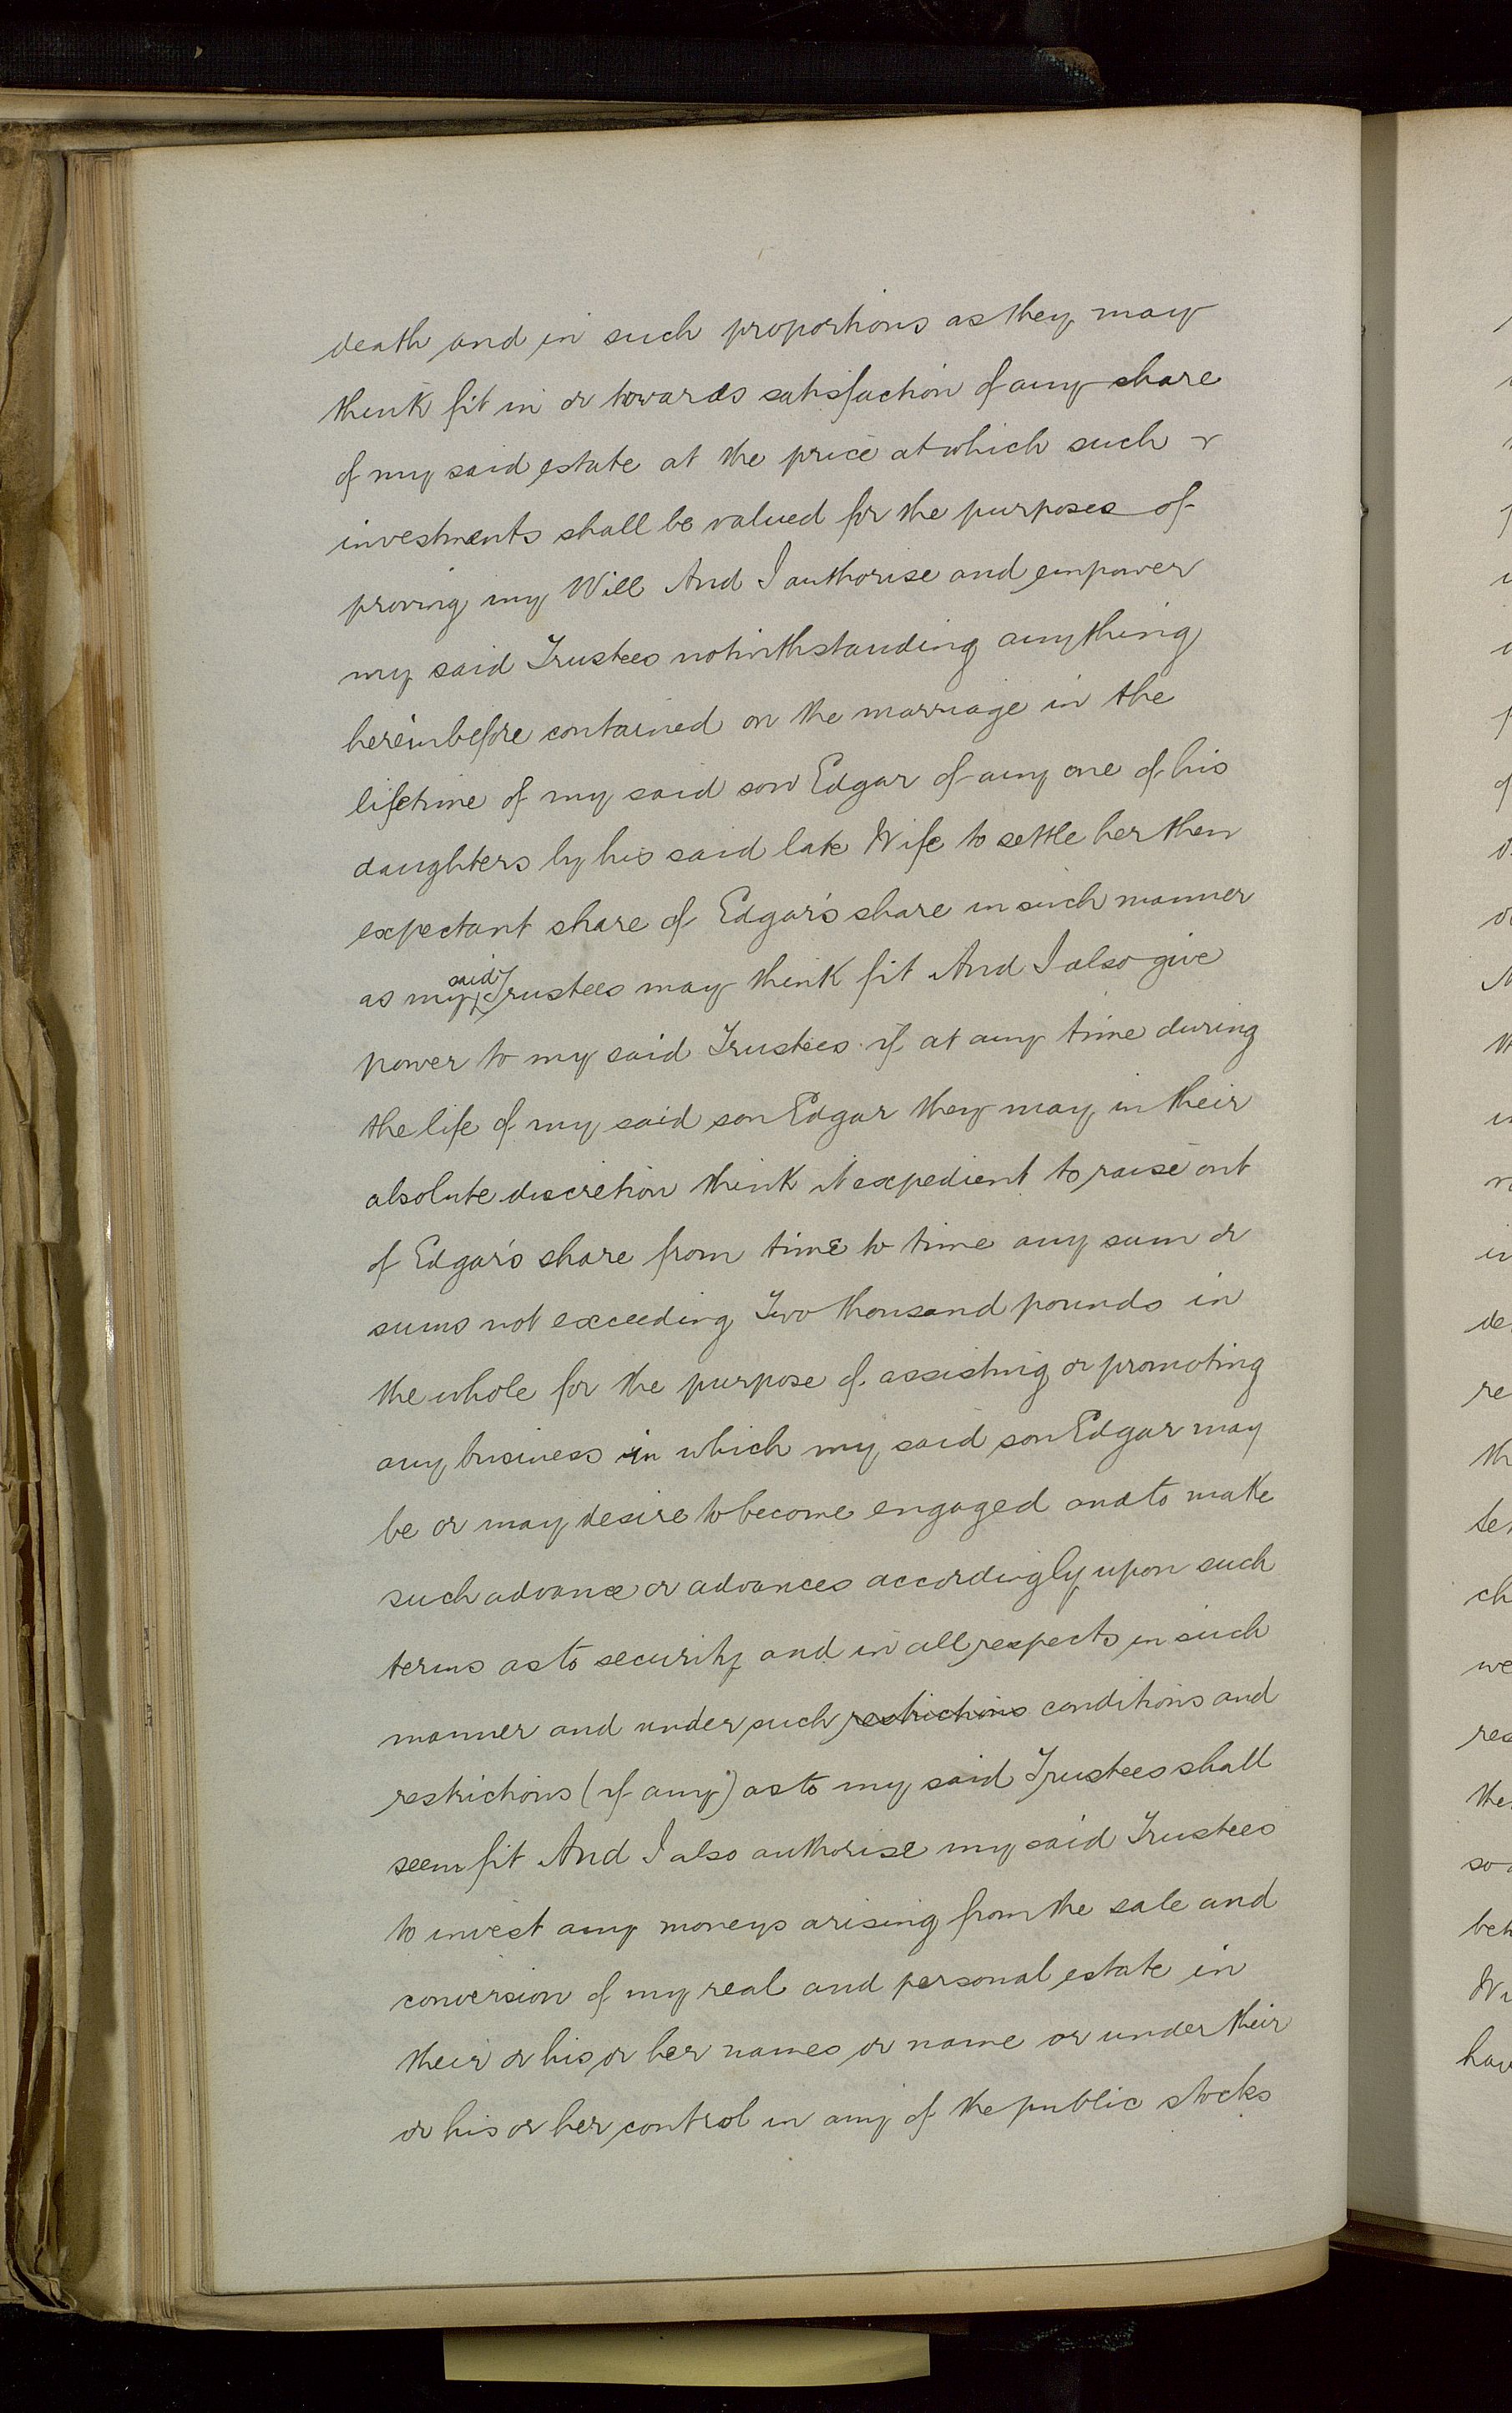 death and in such proportions as they may
think fit in or towards satisfaction of any share
of my said estate at the price at which such
investments shall be valued for the purposes of
proving my Will And I authorise and empower
my said Trustees notwithstanding anything
hereinbefore contained on the marriage in the
lifetime of my said son Edgar of any one of his
daughters by his said late Wife to settle her then
expectant share of Edgar's share in such manner
as my said Trustees may think fit And I also give
power to my said Trustees if at any time during
the life of my said son Edgar they may in their
absolute discretion think it expedient to raise out
of Edgar's share from time to time any sum or
sums not exceeding Two thousand pounds in
the whole for the purpose of assisting or promoting
any business in which my said son Edgar may
be or may desire to become engaged and to make
such advance or advances accordingly upon such
terms as to security and in all respects in such
manner and under such restrictions conditions and
restrictions (if any) as to my said Trustees shall
seem fit And I also authorise my said Trustees
to invest any moneys arising from the sale and
conversion of my real and personal estate in
their or his or her names or name or under their
or his or her control in any of the public stocks